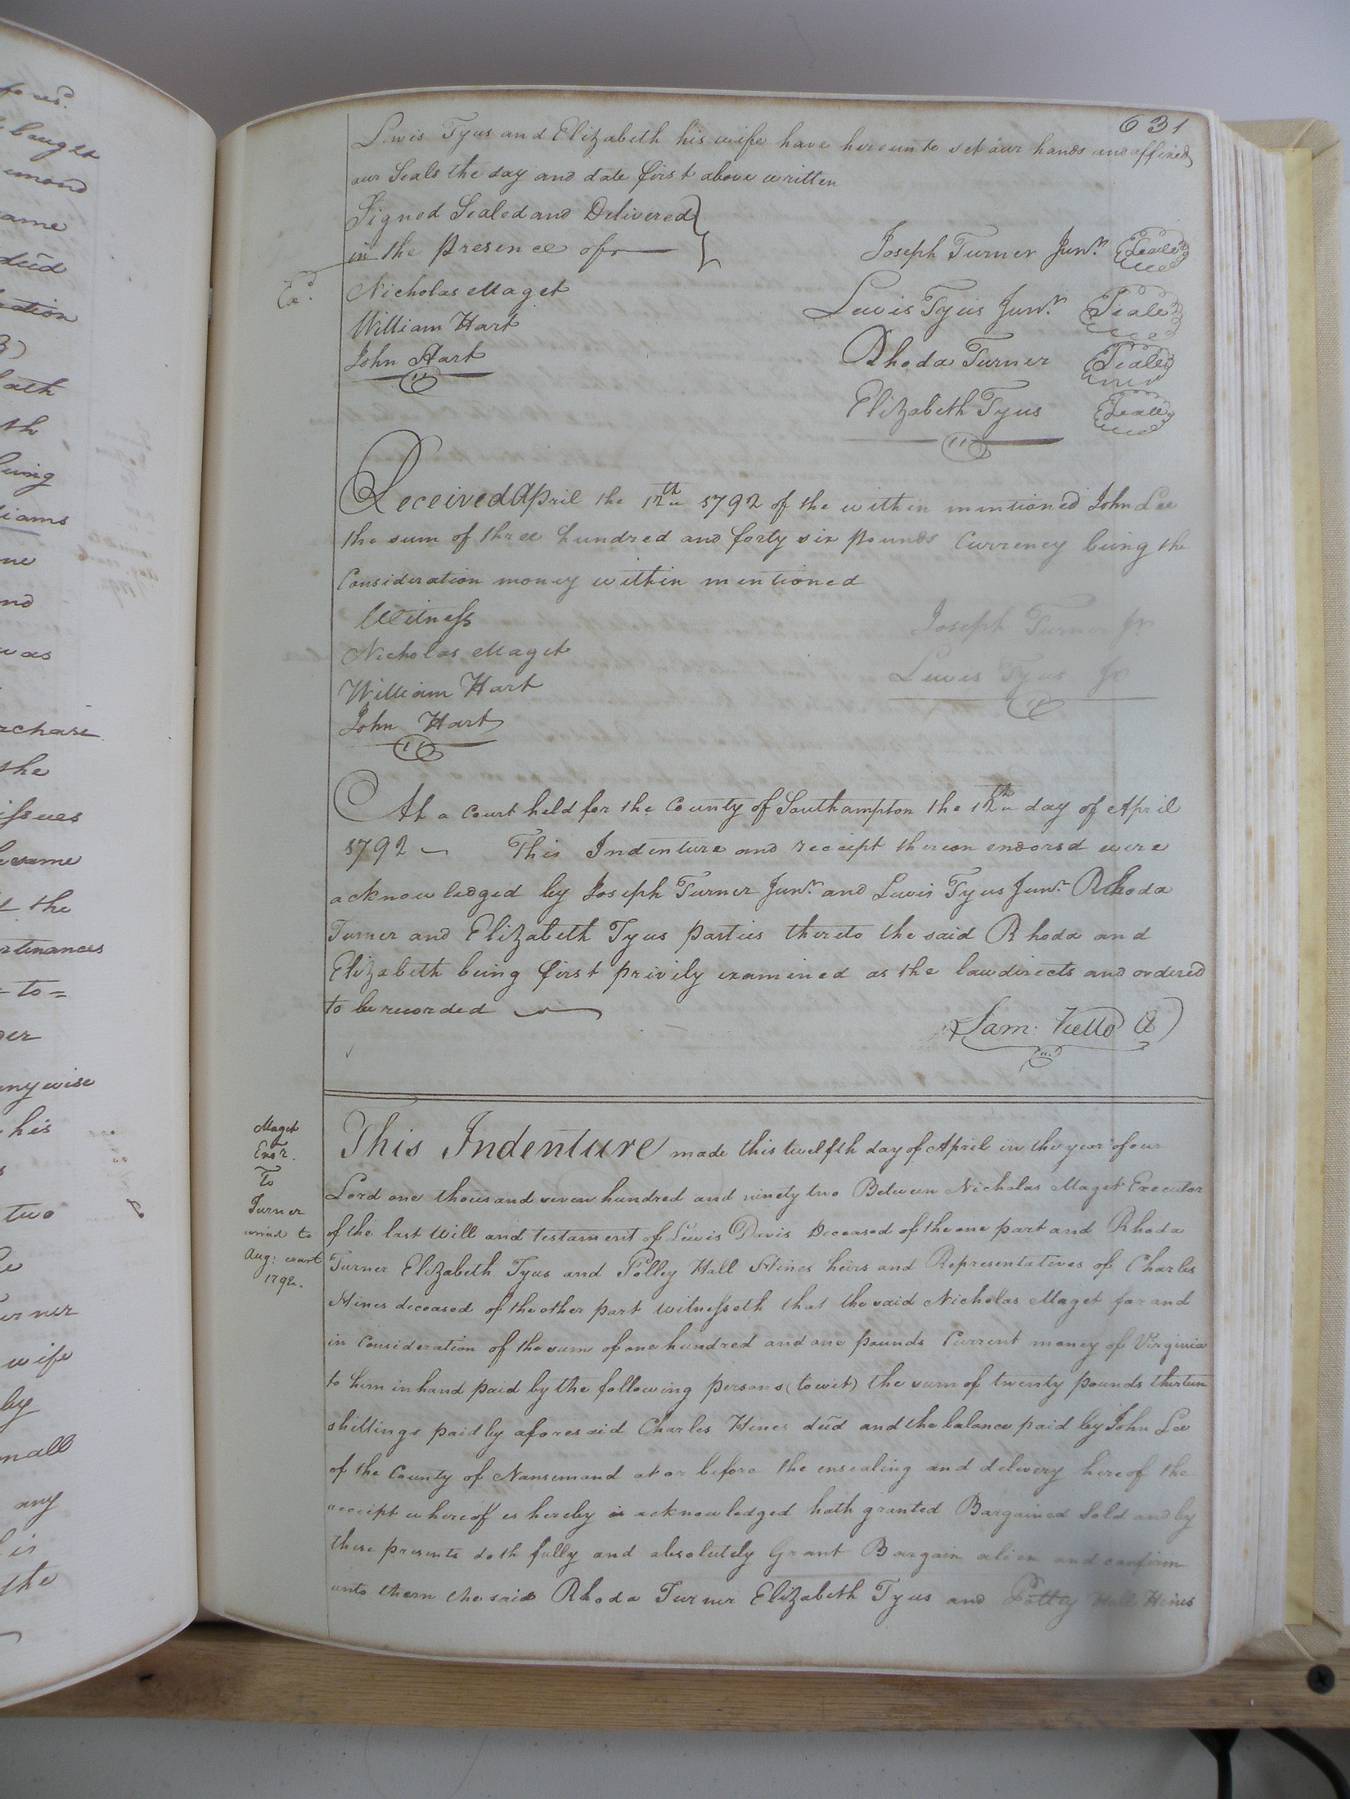 631
Lewis Tyus and Elizabeth his wife have hereunto set our hands and affixed
our Seals the day and date first above written
Signed Sealed and Delivered
in the presence of
Joseph Turner Junr. Seale
Exd.
Nicholas Maget
Lewis Tyus Junr. Seale
William Hart
John Hart
Rhoda Turner Seale
Elizabeth Tyus Seale
Received April the 12th 1792 of the within mentioned John Lee
the sum of three hundred and forty six pounds Currency being the
Consideration money within mentioned
Witness
Joseph Turner Jr
Nicholas Maget
Lewis Tyus Jr
William Hart
John Hart
At a Court held for the County of Southampton the 12th day of April
1792 This Indenture and receipt thereon endorsd were
acknowledged by Joseph Turner Junr. and Lewis Tyus Junr. Rhoda
Turner and Elizabeth Tyus parties thereto the said Rhoda and
Elizabeth being first privily examined as the law directs and ordered
to be recorded
Sam.
Maget
Exor.
To
Turner
to
Aug: court
1792.
This Indenture made this twelfth day of April in the year of our
Lord one thousand seven hundred and ninety two Between Nicholas Maget Executor
of the last Will and testament of Lewis Davis Deceased of the one part and Rhoda
Turner Elizabeth Tyus and Polley Hall Hines heirs and Representatives of Charles
Hines deceased of the other part witnesseth that the said Nicholas Maget for and
in Consideration of the sum of one hundred and one pounds Current money of Virginia
to him in hand paid by the following persons (towit) the sum of twenty pounds thirteen
shillings paid by aforesaid Charles Hines decd and the balance paid by John Lee
of the County of Nansemond at or before the ensealing and delivery hereof the
receipt whereof is hereby is acknowledged hath granted Bargained Sold and by
these presents doth fully and absolutely Grant Bargain alien and confirm
unto them the said Rhoda Turner Elizabeth Tyus and Polley Hall Hines